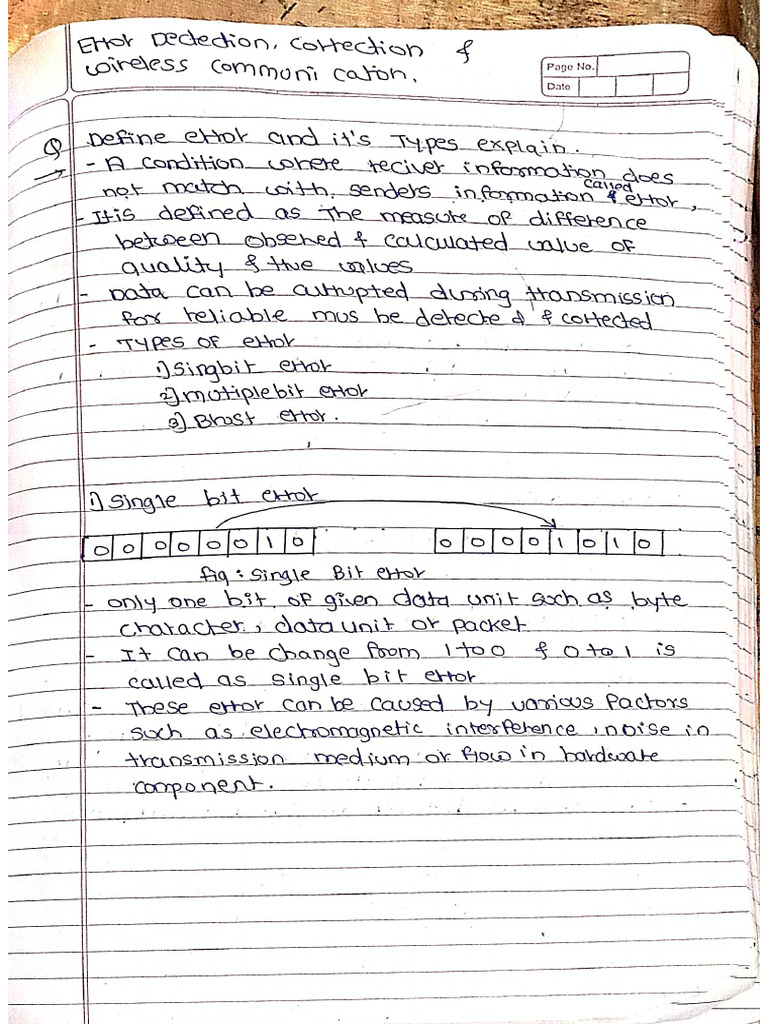 Error Dectection, Correction &
wireless communi cation.
Page No.
Date
Q Define error and it's Types explain.
→ - A condition where reciver information does
not match with senders information & called error,
- It is defined as the measure of difference
between obsened & calculated value of
quality & true values
- Data can be currupted during transmission
for reliable mus be detected & corrected
- Types of error
1) Singbit error
2) mutiplebit error
3) Brust error.
1) Single bit error
0 0 0 0 0 0 1 0 0 0 0 0 1 0 1 0
fig : Single Bit error
- only one bit of given data unit such as byte
character, data unit or packet
- It can be change from 1 to 0 & 0 to 1 is
called as single bit error
- These error can be caused by various factors
such as electromagnetic interference, noise in
transmission medium or flow in hardware
component.